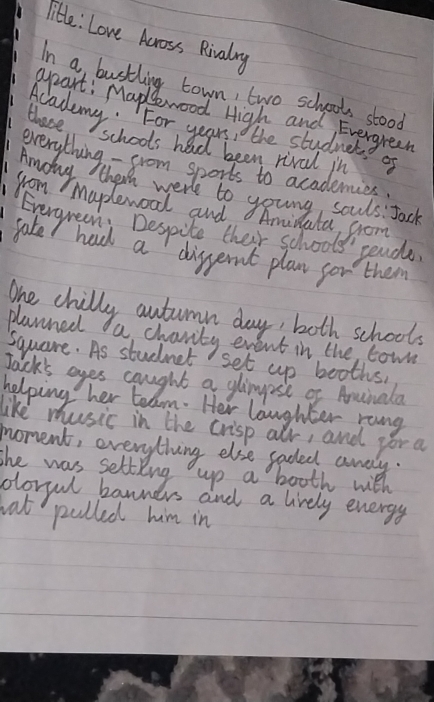 Title: Love Across Rivalry
In a bustling town, two schools stood
apart: Maplewood High and Evergreen
Academy. For years, the studnets of
these schools had been rival in
everything - from sports to academics.
Among them were to young souls: Jack
from Maplewood and Aminata, from
Evergreen. Despite their schools' feude,
fate had a differnt plan for them
One chilly autumn day, both schools
planned a charity event in the town
Square. As studnet set up booths,
Jack's eyes caught a glimpse of Aminata
helping her team. Her laughter rang
like music in the crisp air, and for a
moment, everything else faded away.
she was setting up a booth with
olorful banners and a lively energy
hat pulled him in